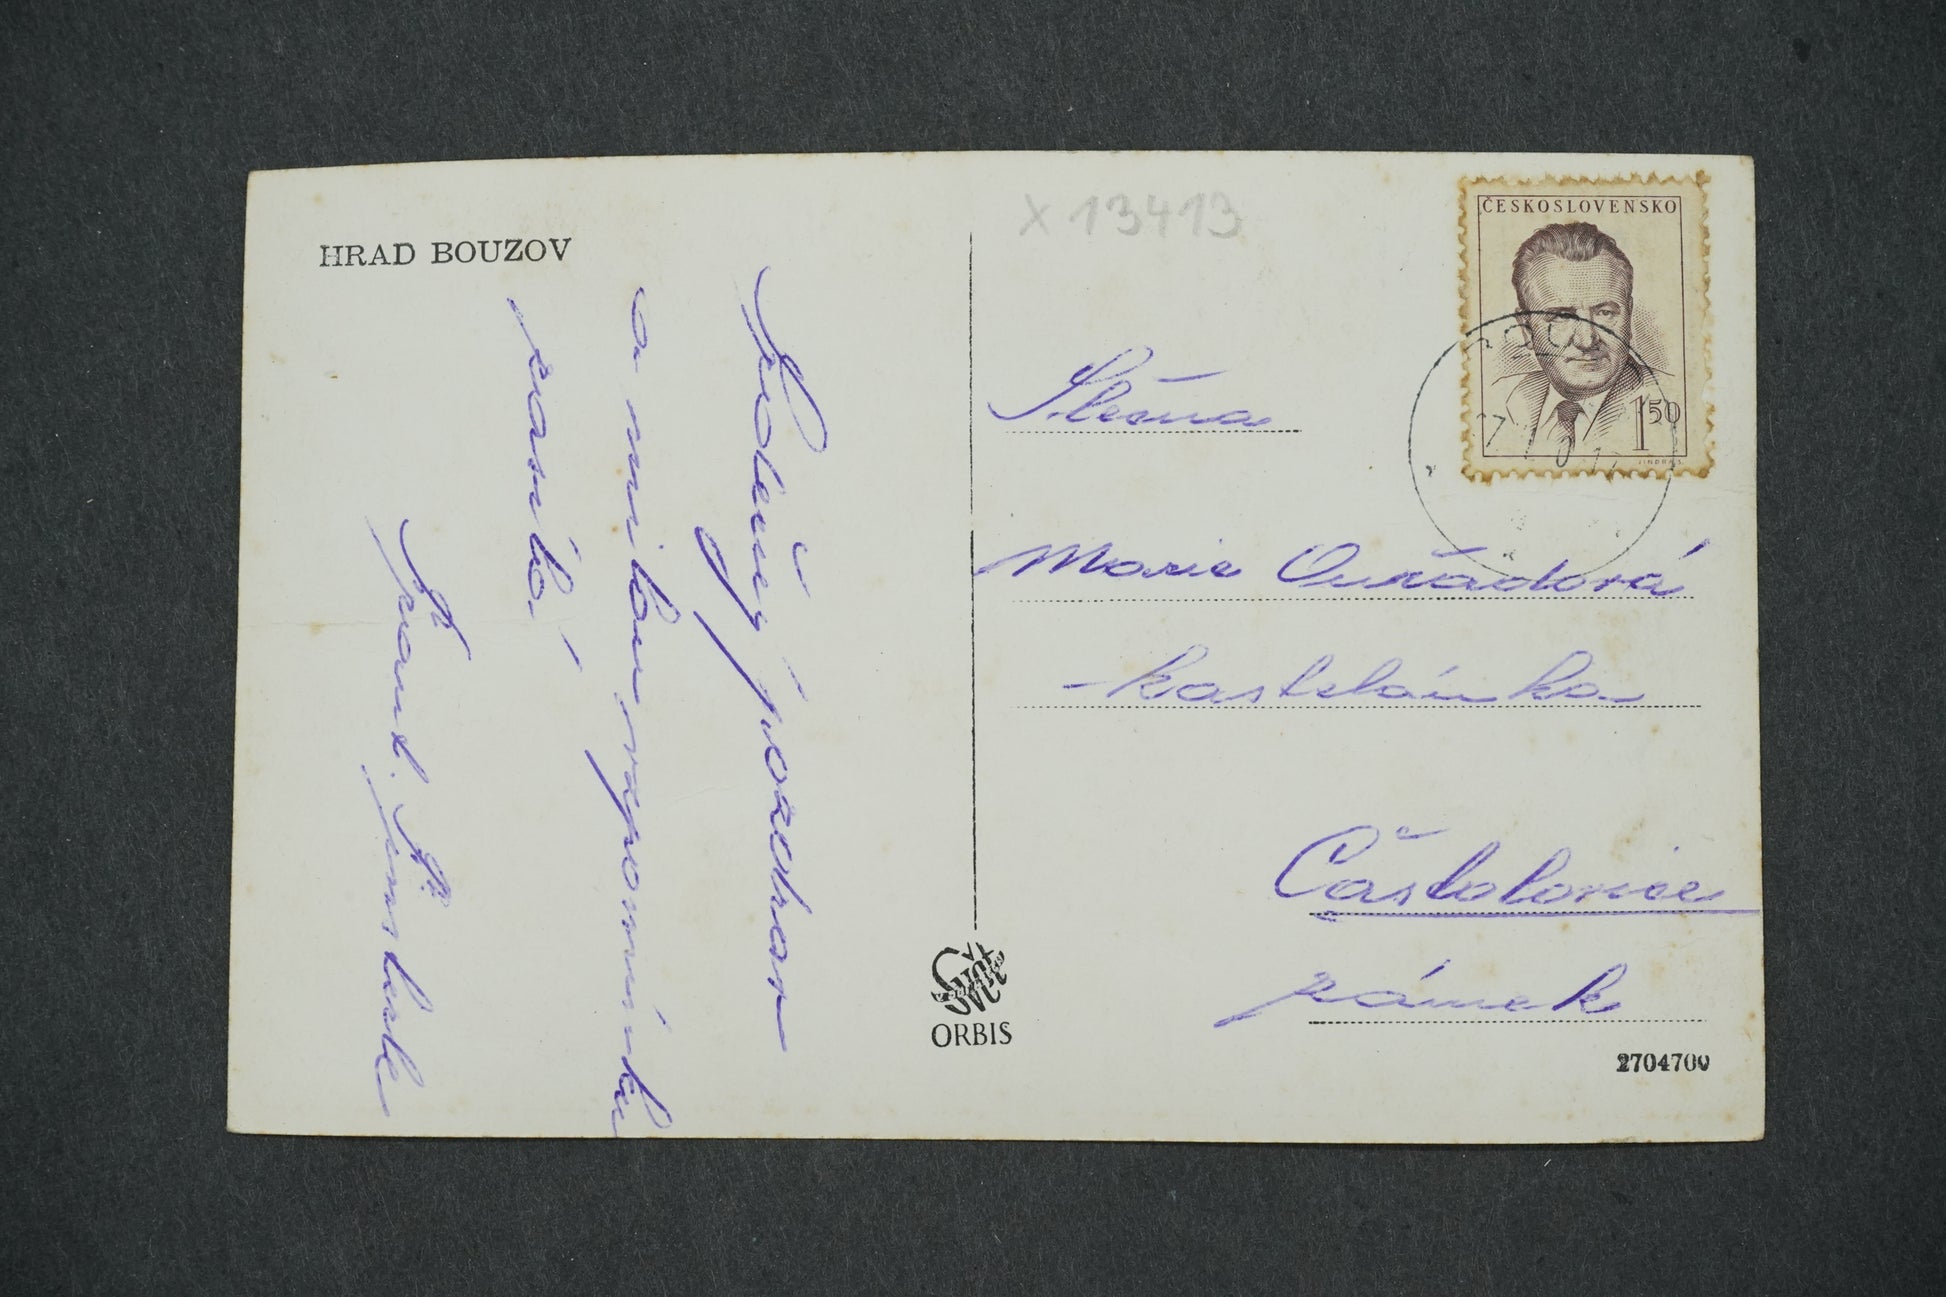 HRAD BOUZOV
Srdečný pozdrav
a milou vzpomínku
zasílá
Frant.
X 13413
ČESKOSLOVENSKO
1 50
Slečna
Marie Ouřadová
- kastelánka
Častolovice
zámek
ORBIS
2704700